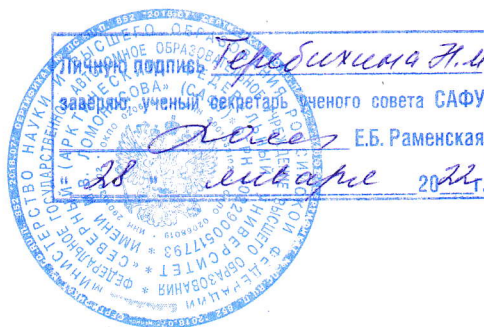 Личную подпись Теребихина Н.М
заверяю: ученый секретарь ученого совета САФУ
Е.Б. Раменская
28 января 2022 г.
МИНИСТЕРСТВО НАУКИ И ВЫСШЕГО ОБРАЗОВАНИЯ РОССИЙСКОЙ ФЕДЕРАЦИИ
ФЕДЕРАЛЬНОЕ ГОСУДАРСТВЕННОЕ АВТОНОМНОЕ ОБРАЗОВАТЕЛЬНОЕ УЧРЕЖДЕНИЕ ВЫСШЕГО ОБРАЗОВАНИЯ
«СЕВЕРНЫЙ (АРКТИЧЕСКИЙ) ФЕДЕРАЛЬНЫЙ УНИВЕРСИТЕТ ИМЕНИ М.В. ЛОМОНОСОВА» (САФУ